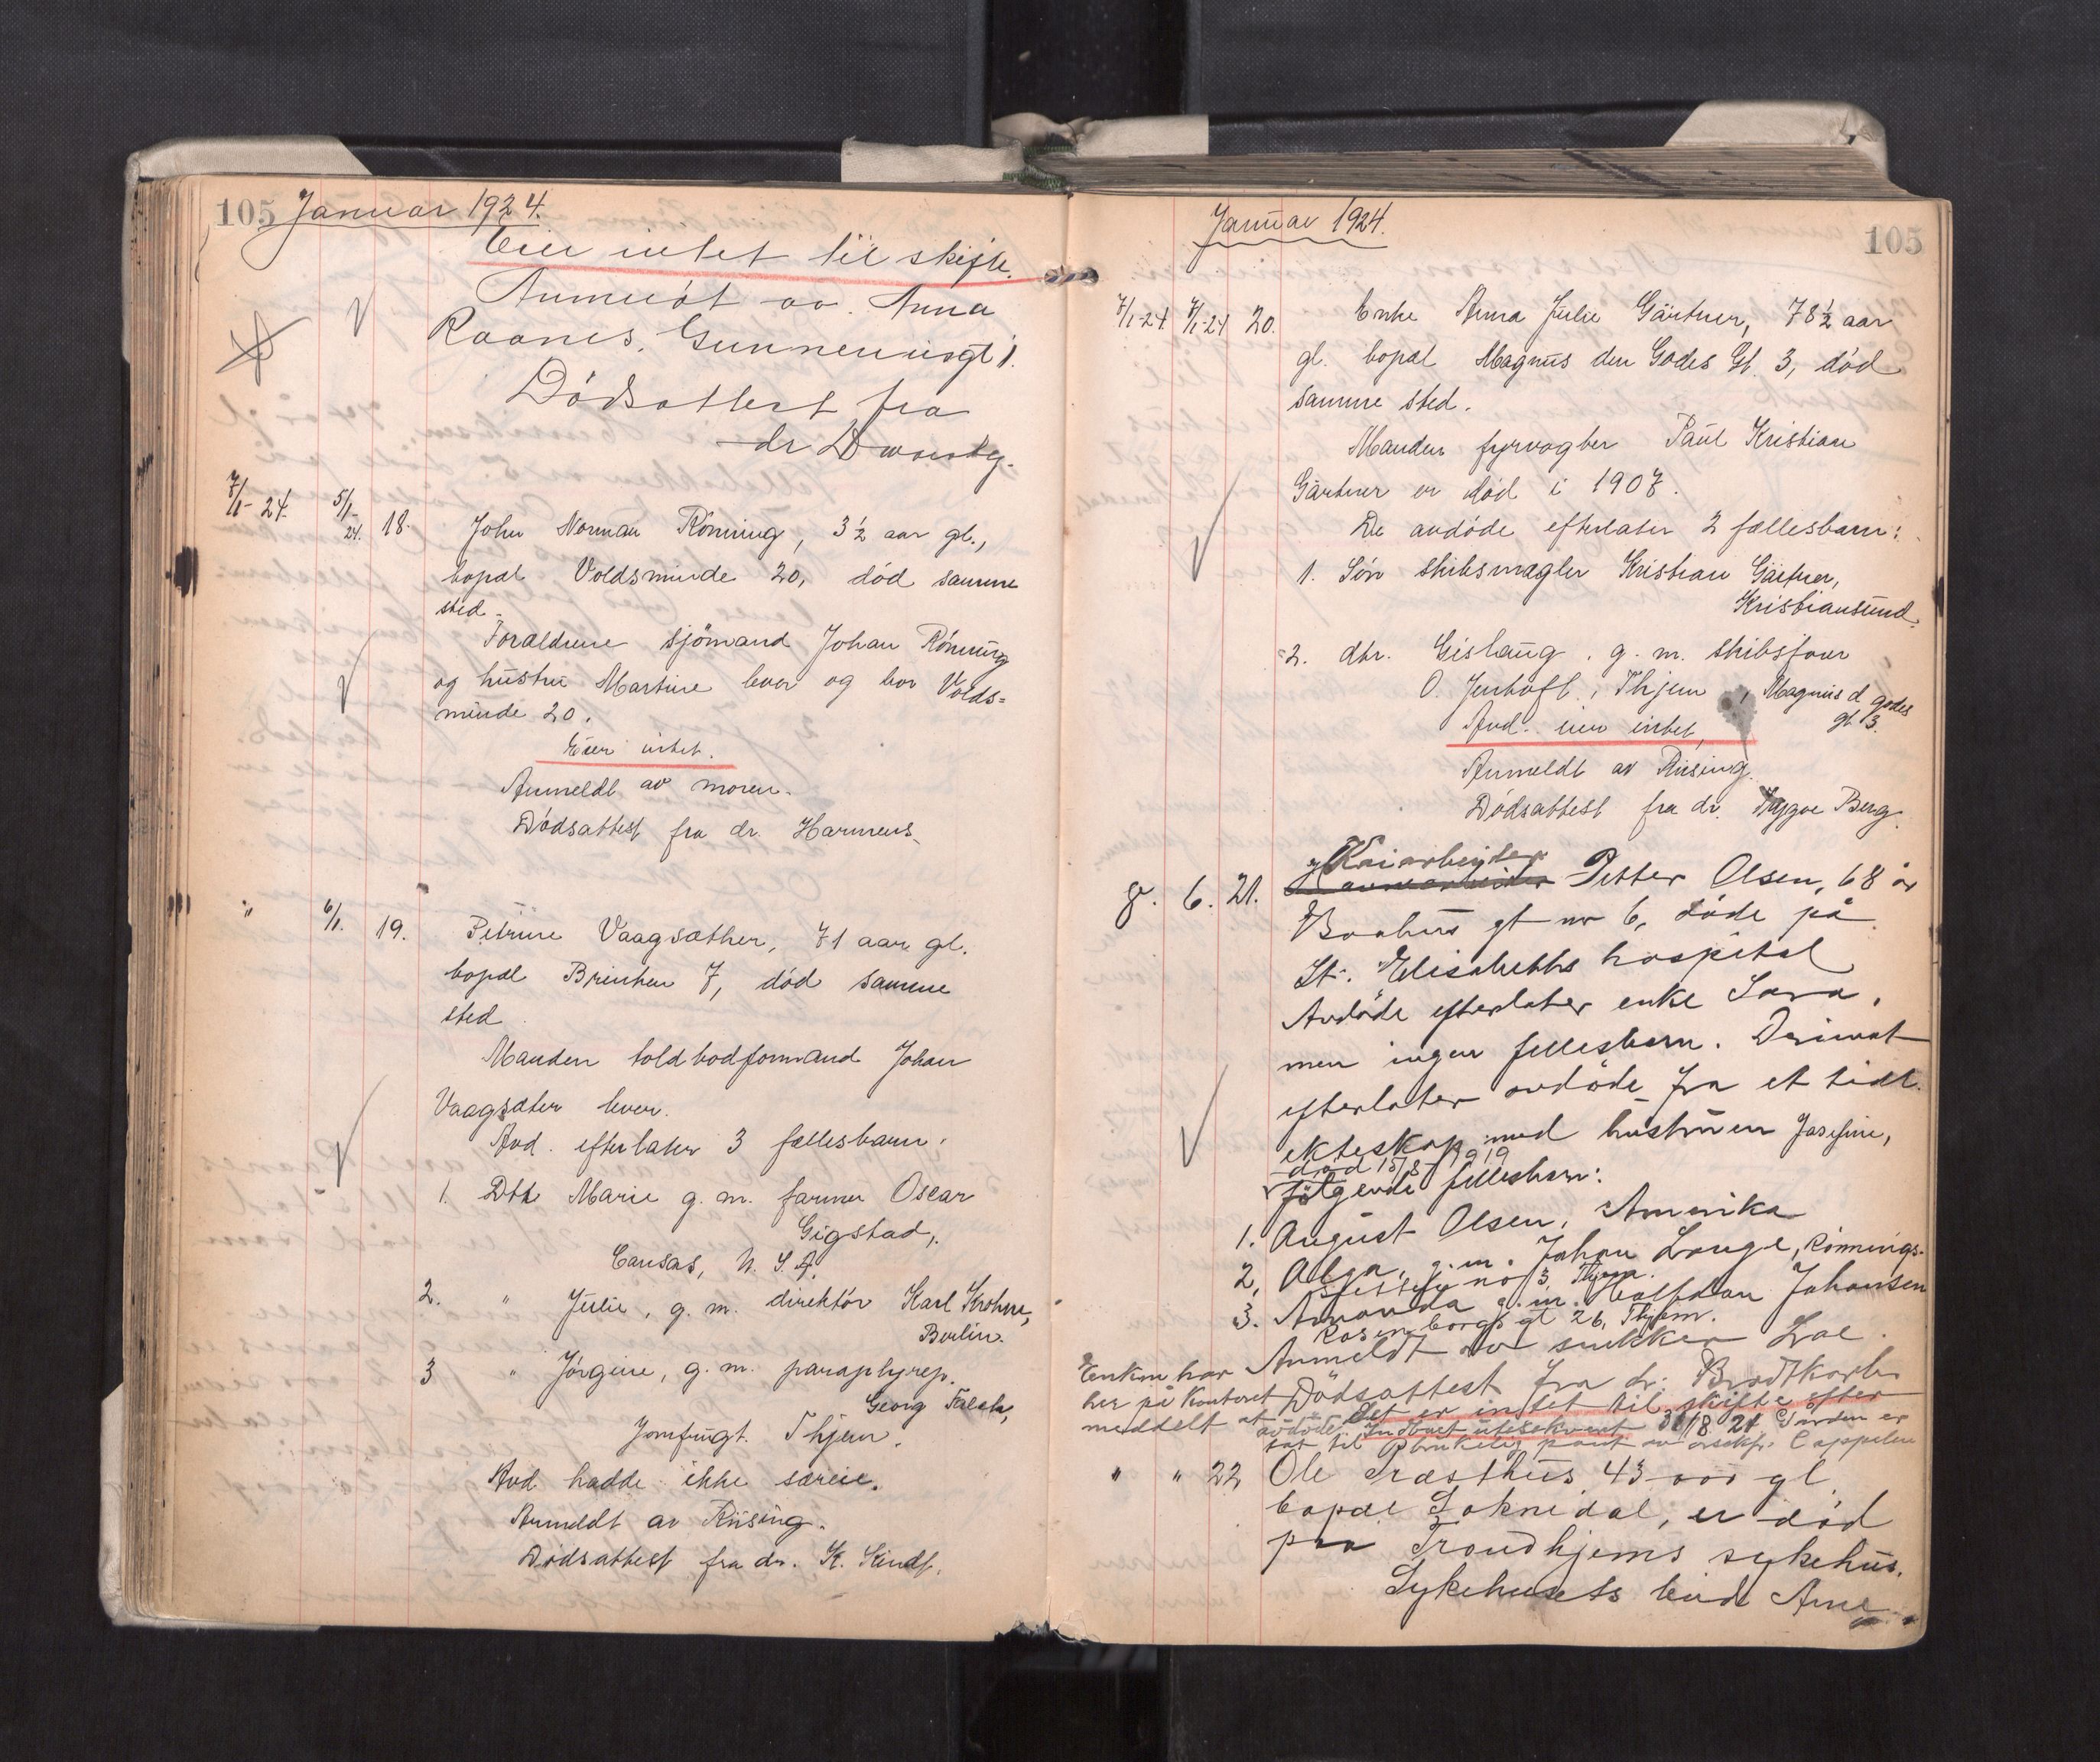 105 Januar 1924.
Eier intet til skifte.
Anmeldt av Anna
Raanes, Gunnerusgt 1.
Dödsattest fra
dr
7/1-24. 5/1-24. 18. John Norman Rönning, 3 1/2 aar gl.,
bopæl Voldsminde 20, död samme
sted.
Forældrene sjömand Johan Rönning
og hustru Martine lever og bor Volds=
minde 20.
Eier intet.
Anmeldt av moren.
Dödsattest fra dr. Harmens.
" 6/1. 19. Petrine Vaagsæther, 71 aar gl.
bopæl Brinken 7, död samme
sted.
Manden toldbodformand Johan
Vaagsæter lever.
Avd. efterlater 3 fællesbarn:
1. Dtr Marie g. m. farmer Oscar
Gigstad,
Cansas, U. S. A.
2. " Julie, g. m. direktör Karl Krohne,
Berlin.
3 " Jörgine, g. m. paraplyrep.
Georg Falck,
Jomfrugt. Thjem.
Avd hadde ikke særeie.
Anmeldt av Riising.
Dödsattest fra dr. K. Lindt.
Januar 1924.
105
7/1-24 7/1-24 20. Enke Anna Julie Gärtner, 78 1/2 aar
gl. bopæl Magnus den Godes Gt. 3, död
samme sted.
Manden fyrvogter Paul Kristian
Gärtner er död i 1907.
De avdöde efterlater 2 fællesbarn:
1. Sön skibsmægler Kristian Gärtner,
Kristiansund.
2. dtr. Gislaug, g. m. skibsförer
O. Jenhoft, Thjem, Magnus d godes
gt 3.
Avd. eier intet,
Anmeldt av Riising.
Dödsattest fra dr. Trygve Berg.
Kaiarbeider
8. 6. 21. Petter Olsen, 68 år
Baahus gt nr 6, döde på
St. Elisabeths hospital
Avdöde efterlater enke Sara,
men ingen fellesbarn. Derimot
efterlater avdöde fra et tidl.
ekteskap med hustruen Josefine,
död 15/8 1919
fölgende fellesbarn:
1. August Olsen, Amerika
2, Olga, g. m. Johan Lange, Rönnings-
no 3 Thjem.
3. Amanda g. m. Halfdan Johansen
Rosenborgs gt 26, Thjem.
Anmeldt av snekker Loe.
Enken har
her på kontoret Dödsattest fra dr. Brodtkorb
meddelt at det er intet til skifte efter
avdöde. Indbort utlsekvent 30/8. 21 Gården er
sat til brukelig pant av orsakf. Cappelen
" " 22 Ole Præsthus 43 aar gl.
bopæl Soknedal, er död
paa Trondhjems sykehus.
Sykehusets bud Arne